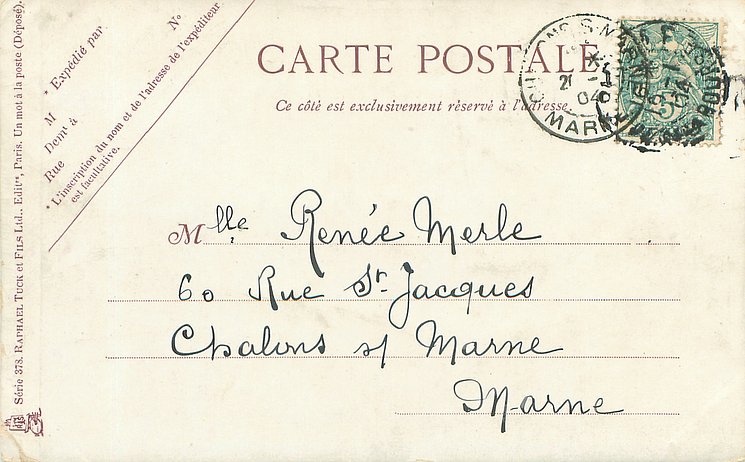 CARTE POSTALE
Ce côté est exclusivement réservé à l'adresse.
* Expédié par
N°
M
Domt à
Rue
* L'inscription du nom et de l'adresse de l'expéditeur
est facultative.
Série 373. RAPHAEL TUCK ET FILS Ltd., Editrs, Paris. Un mot à la poste (Déposé).
04
MARNE
5c
Mlle Renée Merle
60 Rue St Jacques
Chalons s/ Marne
Marne